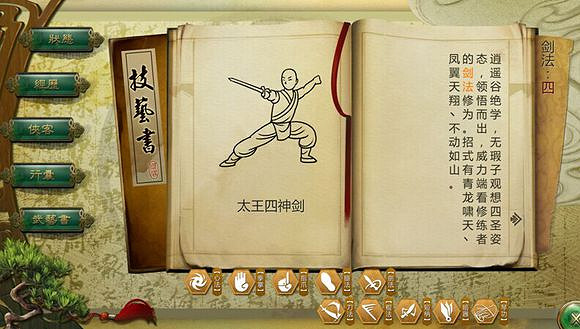 狀態
經歷
俠客
行囊
武藝書
技藝書
太王四神剑
剑法：四
逍遥谷绝学，无瑕子观想四圣姿
态，领悟而出，威力端看修练者
的剑法修为。招式有青龙啸天、
凤翼天翔、不动如山。